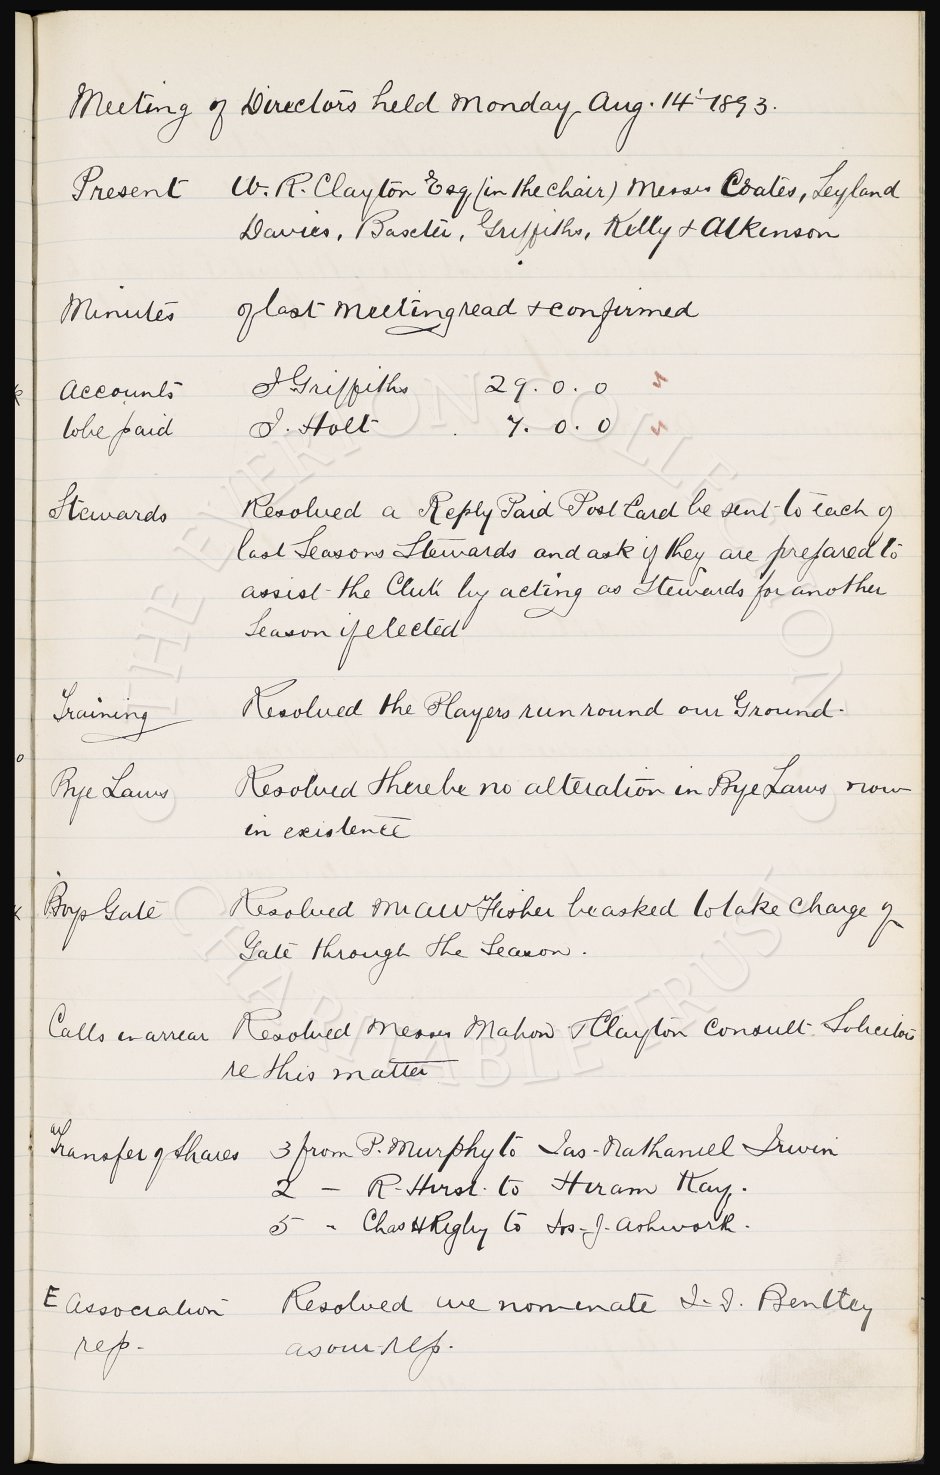 Meeting of Directors held Monday Aug. 14 1893.
Present W. R. Clayton Esq (in the chair) Messrs Coates, Leyland
Davies, Baxter, Griffiths, Kelly & Atkinson
Minutes of last meeting read & confirmed
Accounts J Griffiths 29. 0. 0
to be paid J. Holt 7. 0. 0
Stewards Resolved a Reply Paid Post Card be sent to each of
last Seasons Stewards and ask if they are prepared to
assist the Club by acting as Stewards for another
Season if elected
Training Resolved the Players run round our Ground.
Bye Laws Resolved there be no alteration in Bye Laws now
in existence
Boys Gate Resolved Mr A W Fisher be asked to take charge of
Gate through the Season.
Calls in arrear Resolved Messrs Mahon & Clayton consult Solicitors
re this matter
Transfer of Shares 3 from P. Murphy to Jas. Nathaniel Irwin
2 — R. Hirst to Hiram Kay.
5 " Chas H Rigby to Jos. J. Ashworth.
E Association Resolved we nominate J. J. Bentley
rep. as our rep.
THE EVERTON COLLECTION
CHARITABLE TRUST